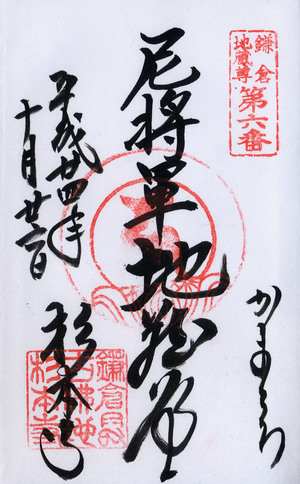 鎌倉
地蔵尊
第六番
かまくら
尼将軍地蔵尊
平成廿四年
十月廿日
杉本寺
鎌倉
杉本寺